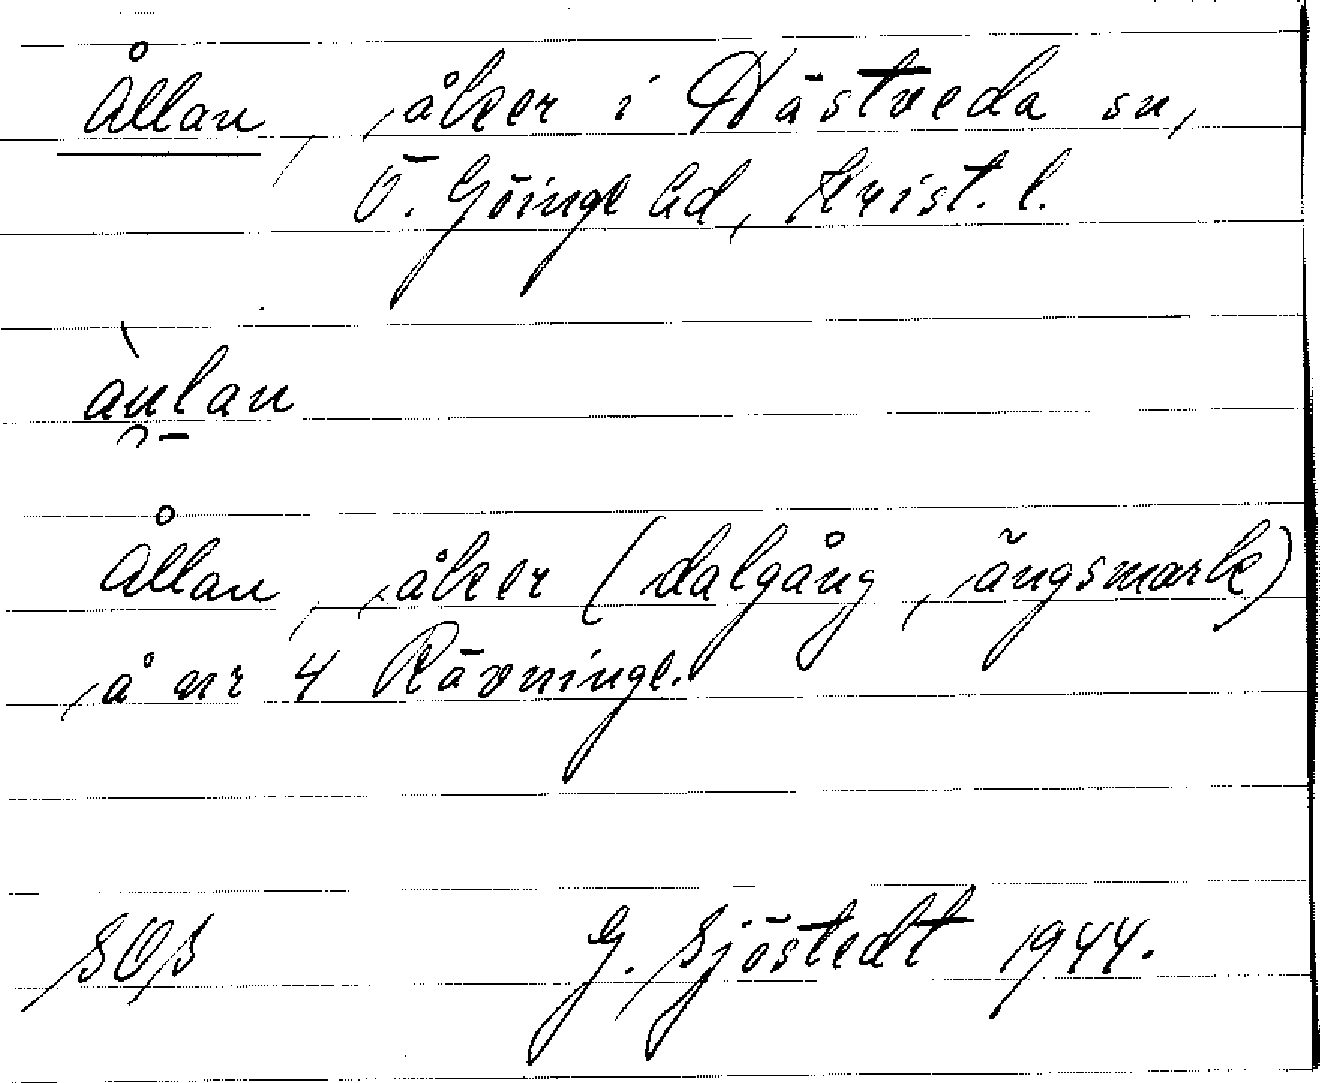 Ållan, åker i Hästveda sn,
Ö. Göinge hd, Krist. l.
àu̯lan
Ållan, åker (dalgång, ängsmark)
å nr 4 Rävninge.
SOS G. Sjöstedt 1944.